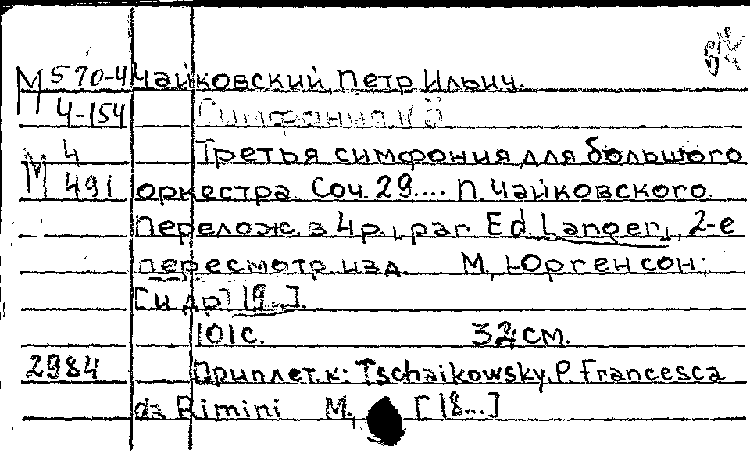 М 570-4 Чайковский, Петр Ильич.
4-154 Симфония № 3
М 4 Третья симфония для большого
491 оркестра. Соч. 29.... П. Чайковского.
Перелож. в 4 р., par Ed. Langer, 2-е
пересмотр. изд. М., Юргенсон;
[и др.] [19...].
101 с. 32 см.
2984 Приплет. к: Tschaikowsky, P. Francesca
da Rimini М., [18...]